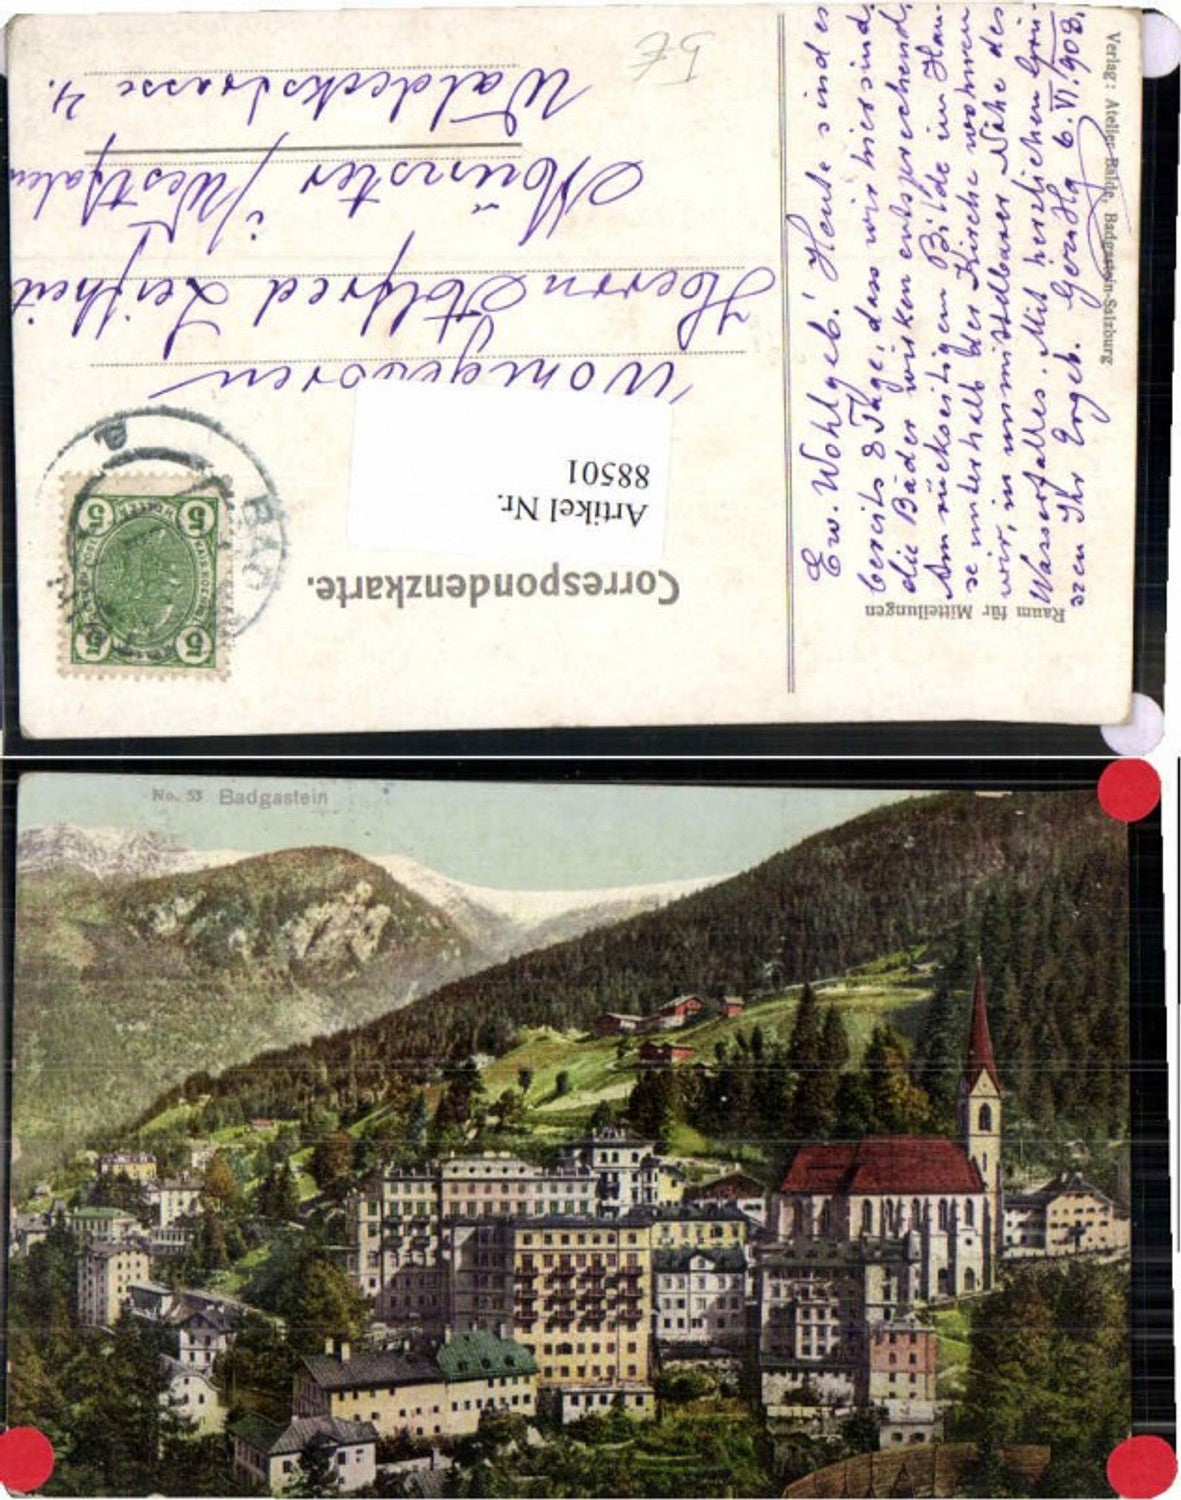 Correspondenzkarte.
Artikel Nr.
88501
Wohlgeboren
Herrn Alfred Leifheit
Münster i/Westfalen
Waldeckstrasse 4.
5€
5 5
5 5
BAD
Raum für Mitteilungen
Ew. Wohlgeb.! Heute sind es
bereits 8 Tage, dass wir hier sind,
die Bäder wirken entsprechend.
Am rückseitigem Bilde im Hau-
se unterhalb der Kirche wohnen
wir, in unmittelbarer Nähe des
Wasserfalles. Mit herzlichen Grü-
szen Ihr Ergeb. 6.VI.908.
Verlag: Atelier Balde, Badgastein-Salzburg
No. 53 Badgastein